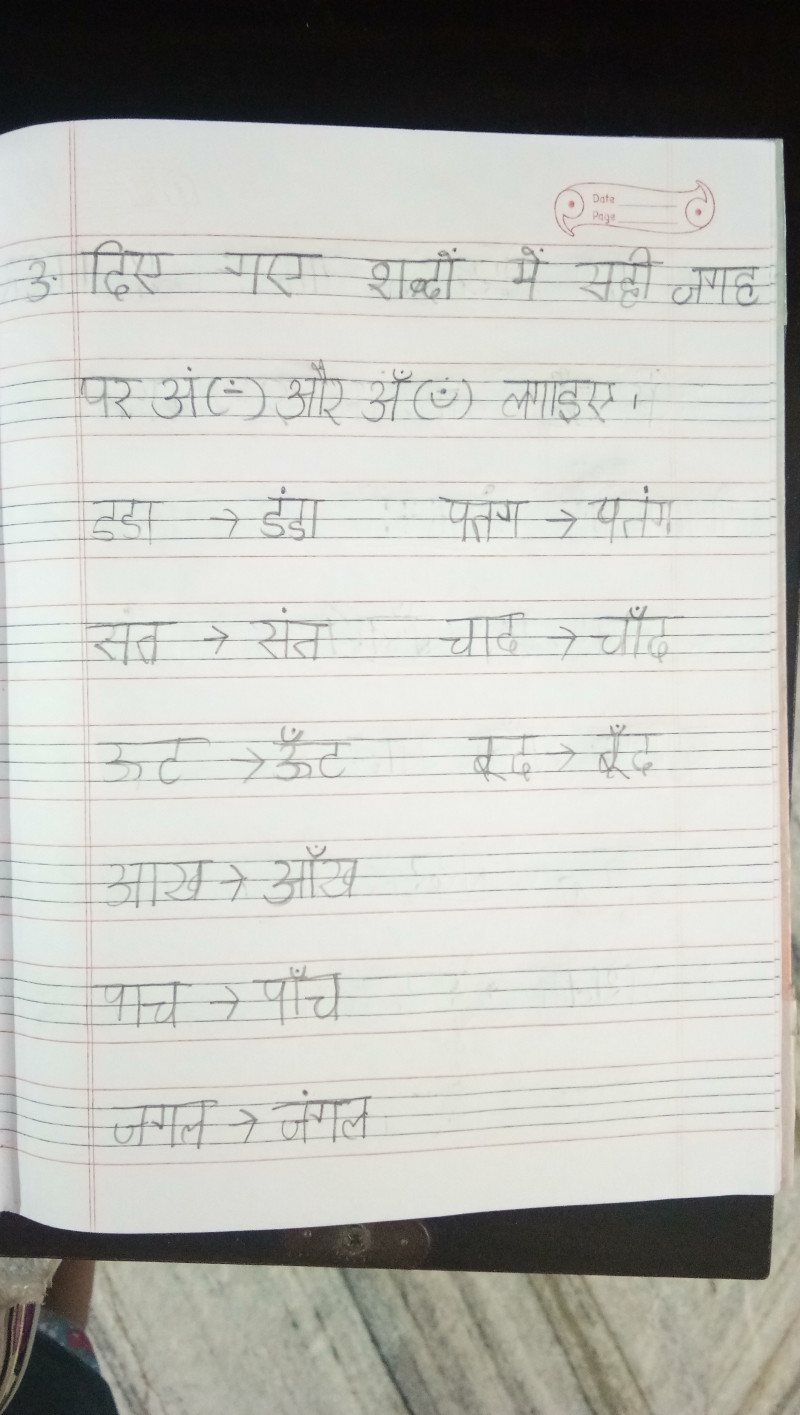 Date
Page
3. दिए गए शब्दों में सही जगह
पर अं(ं) और अँ(ँ) लगाइए।
डडा → डंडा पतग → पतंग
सत → संत चाद → चाँद
ऊट → ऊँट बूद → बूँद
आख → आँख
पाच → पाँच
जगल → जंगल